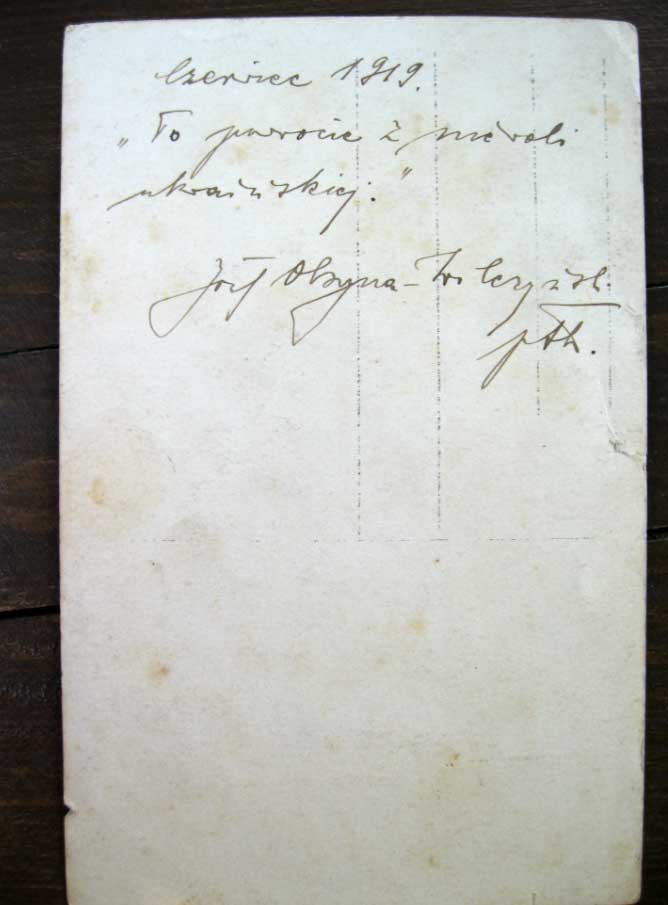 Czerwiec 1919.
„Po powrocie z niewoli
ukraińskiej."
Józef Olszyna-Wilczyński.
płk.